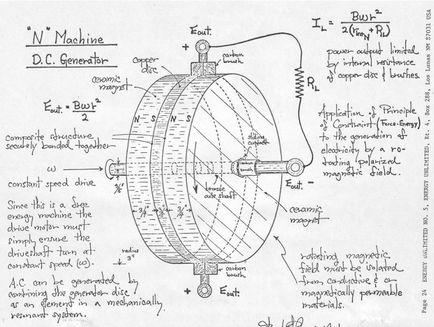 "N" Machine
D.C. Generator
E out. = Bωr² / 2
Composite structure
securely bonded together
ω
constant speed drive
Since this is a
energy machine the
drive motor must
simply ensure the
driveshaft turn at
constant speed (ω).
A.C can be generated by
combining the generator disc
as an element in a mechanically
resonant system.
copper
disc
ceramic
magnet
E out.
+
carbon
brush
N S
N S
sliding
contact
E out. -
ceramic
magnet
radius
carbon
brush
+
E out.
R L
I L = Bωr² / 2(r + R L)
power output limited
by internal resistance
of copper disc & brushes.
Application of Principle
of Constraint (Force-Energy)
to the generation of
electricity by a ro-
tating polarized
magnetic field.
rotating magnetic
field must be isolated
from conductive & or
magnetically permeable
materials.
Page 24 ENERGY UNLIMITED NO. 5, ENERGY UNLIMITED, Rt. 4, Box 288, Los Lunas NM 87031 USA